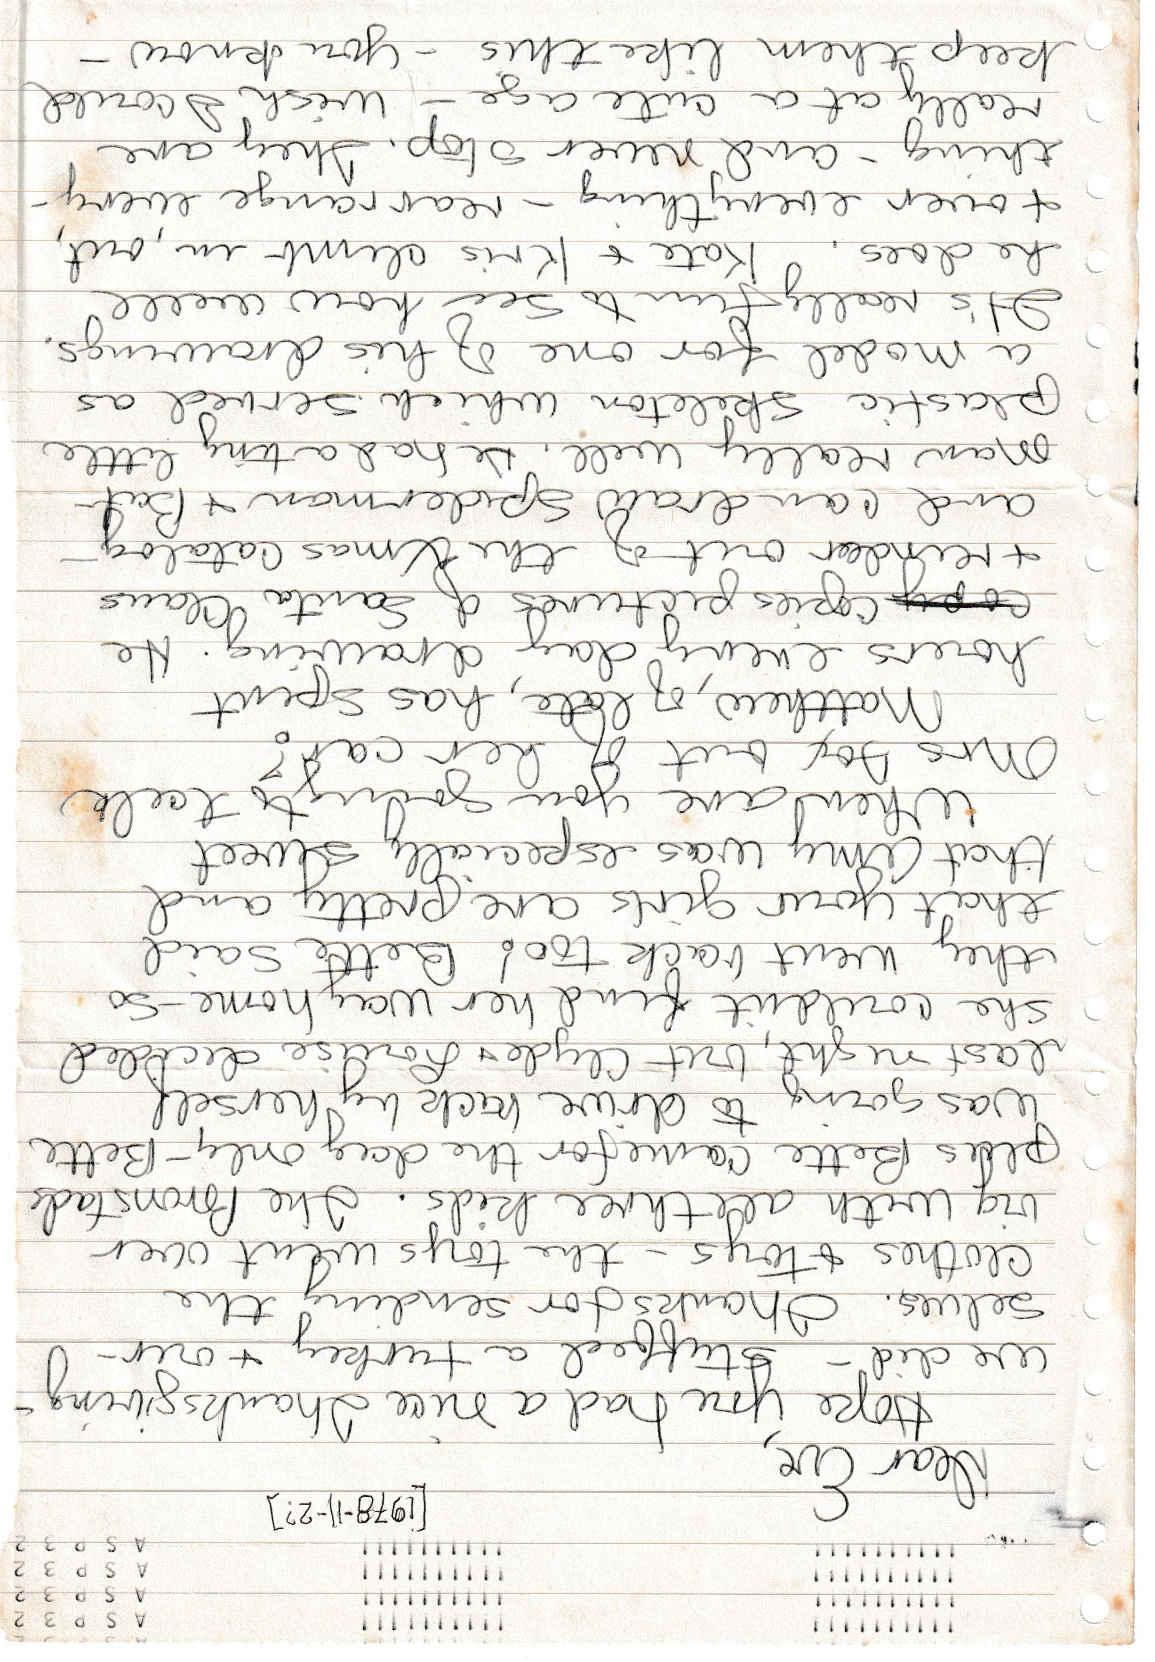 A S P 3 2
A S P 3 2
A S P 3 2
A S P 3 2
[1978-11-2?]
Dear Eve,
Hope you had a nice Thanksgiving -
we did - stuffed a turkey & our-
selves. Thanks for sending the
clothes & toys - the toys went over
big with all three kids. The Bronstads
plus Bette came for the day only - Bette
was going to drive back by herself
last night, but Clyde & Louise decided
she couldn't find her way home - so
they went back too! Bette said
that your girls are pretty and
that Amy was especially sweet
When are you going to teach
Mrs Foy out of her car?
Matthew, of late, has spent
hours every day drawing. He
copy copies pictures of Santa Claus
& reindeer out of the Xmas catalog -
and can draw Spiderman & Bat-
man really well. He had a tiny little
plastic skeleton which served as
a model for one of his drawings.
It's really fun to see how well
he does. Kate & Kris climb in, out,
& over everything - rearrange every-
thing - and never stop. They are
really at a cute age - wish I could
keep them like this - you know -